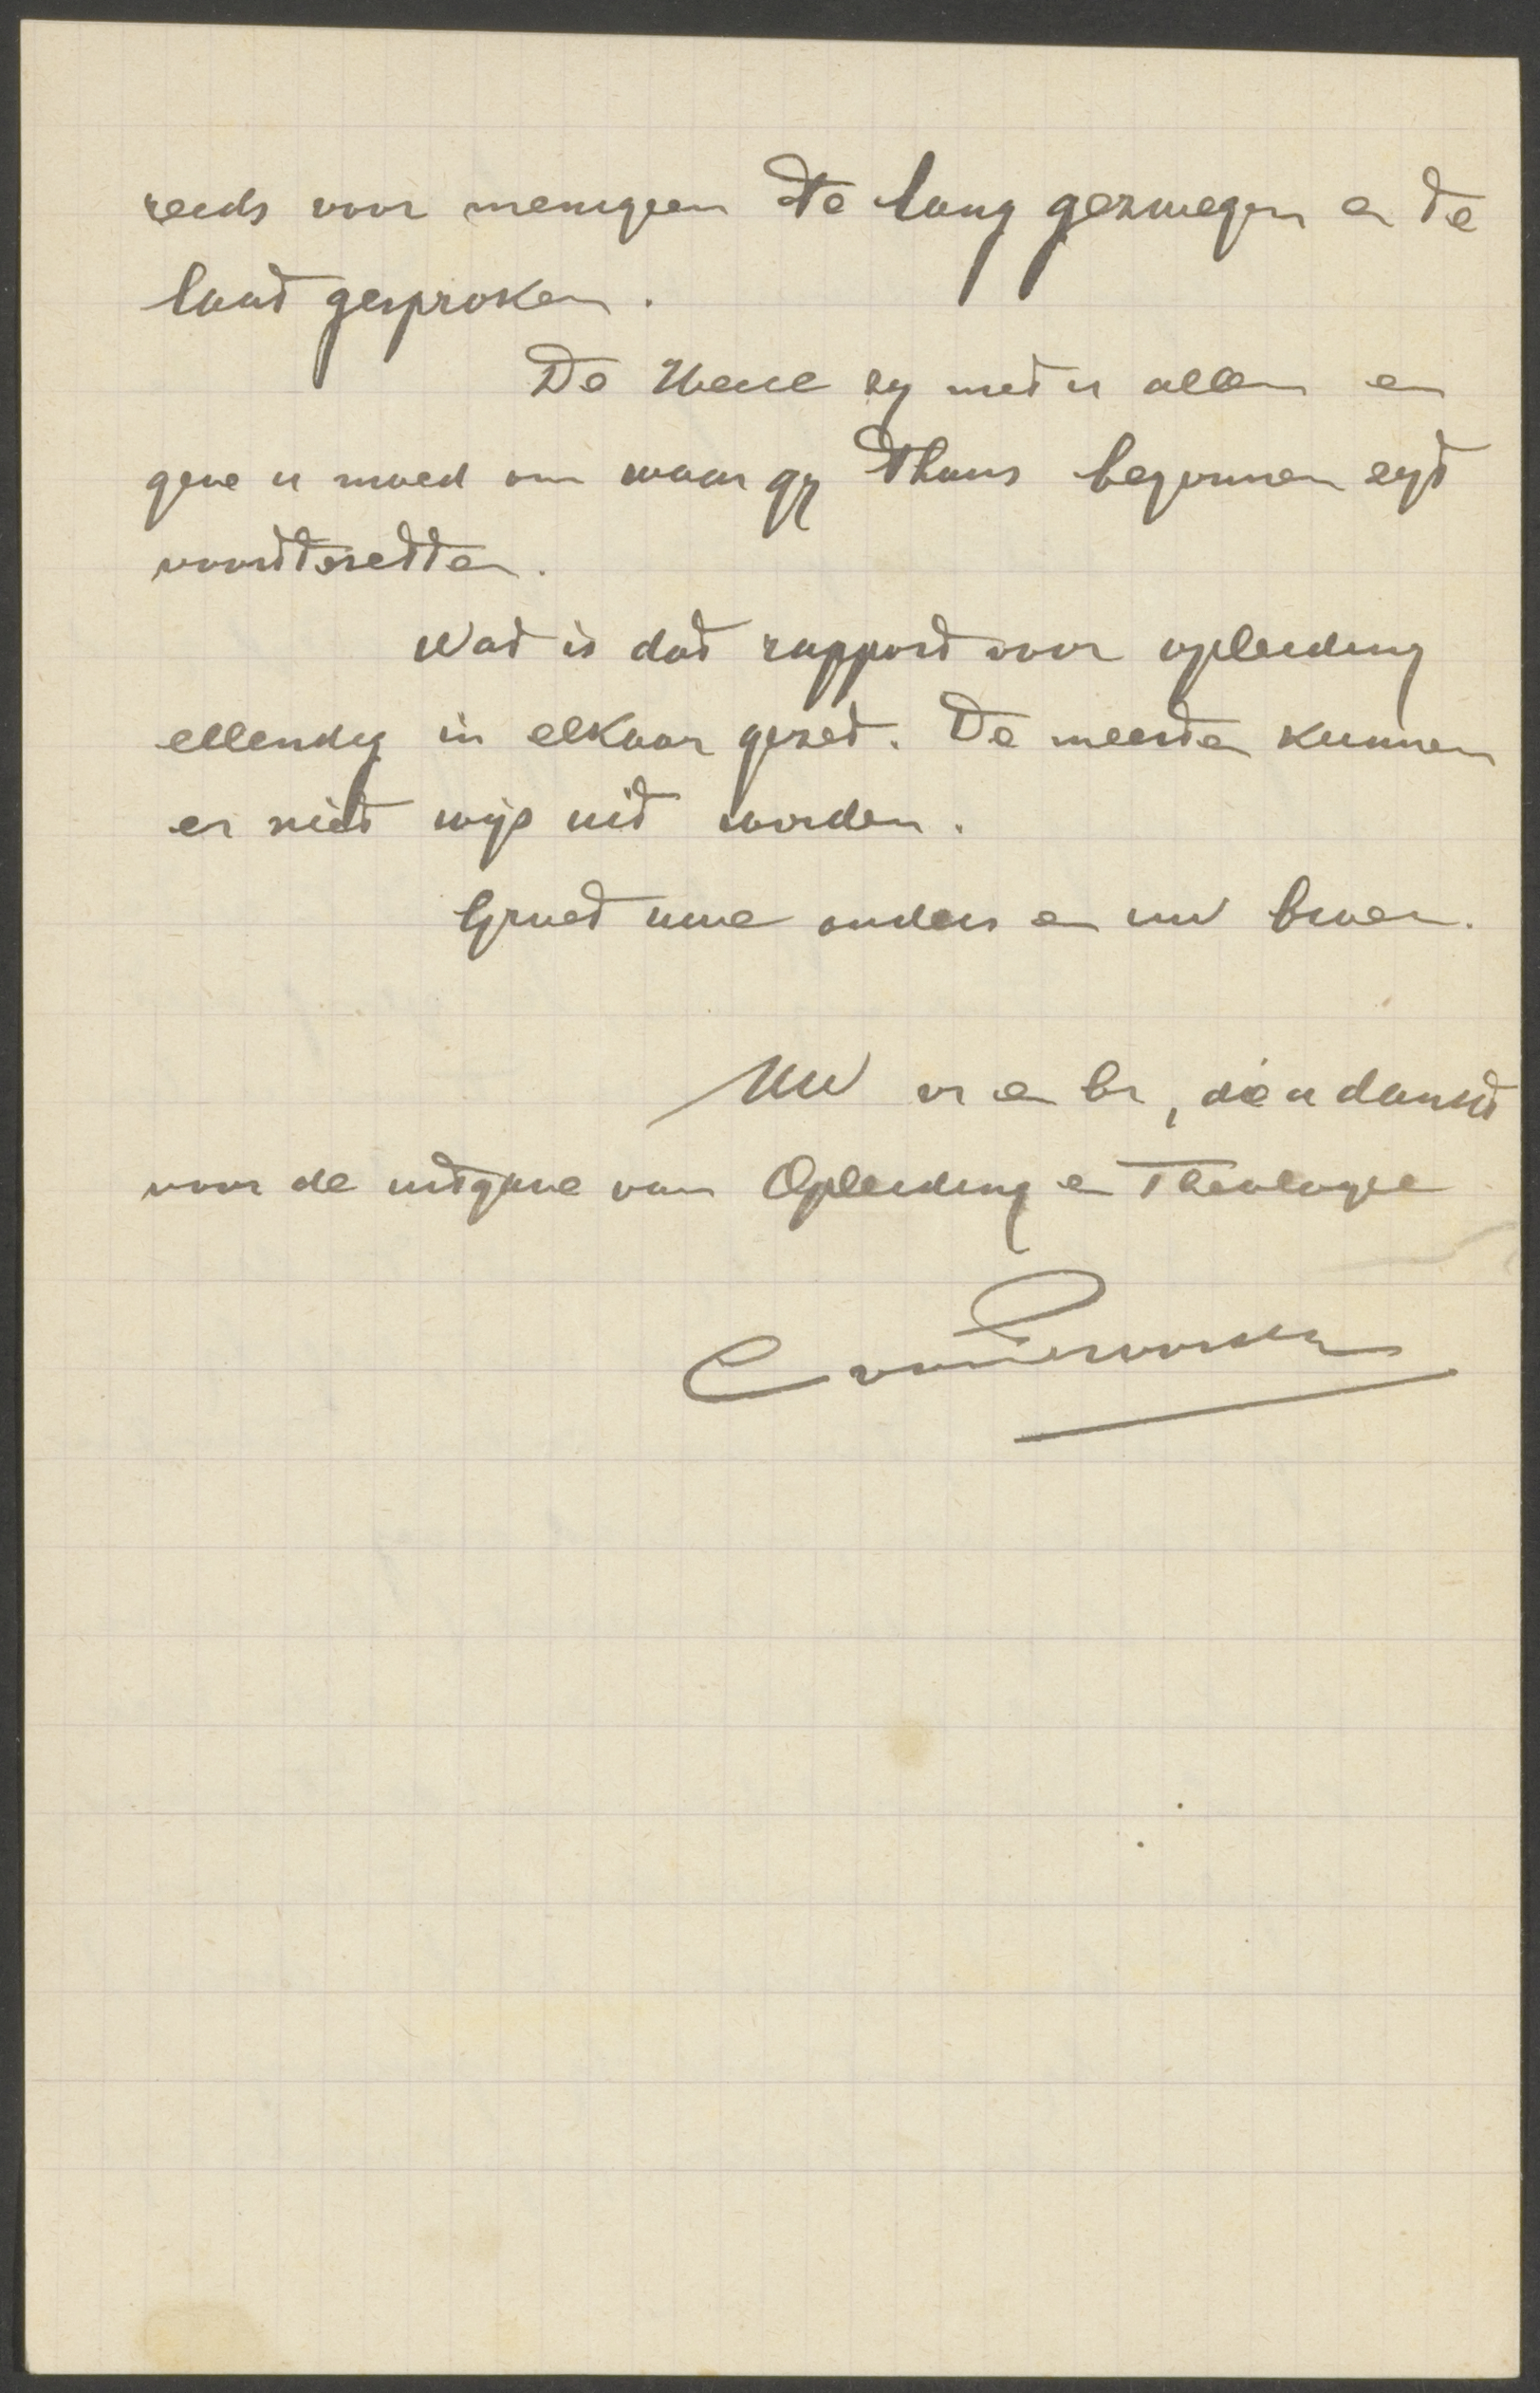 reeds voor menigeen te lang gezwegen en te
laat gesproken.
De Heere zy met u allen en
geve u moed om waar gy thans begonnen zyt
voort te zetten.
Wat is dat rapport voor opleiding
ellendig in elkaar gezet. De meesten kunnen
er niet wijs uit worden.
Groet uwe ouders en uw broer.
Uw vr en br, die u dankt
voor de uitgave van Opleiding en Theologie
C van